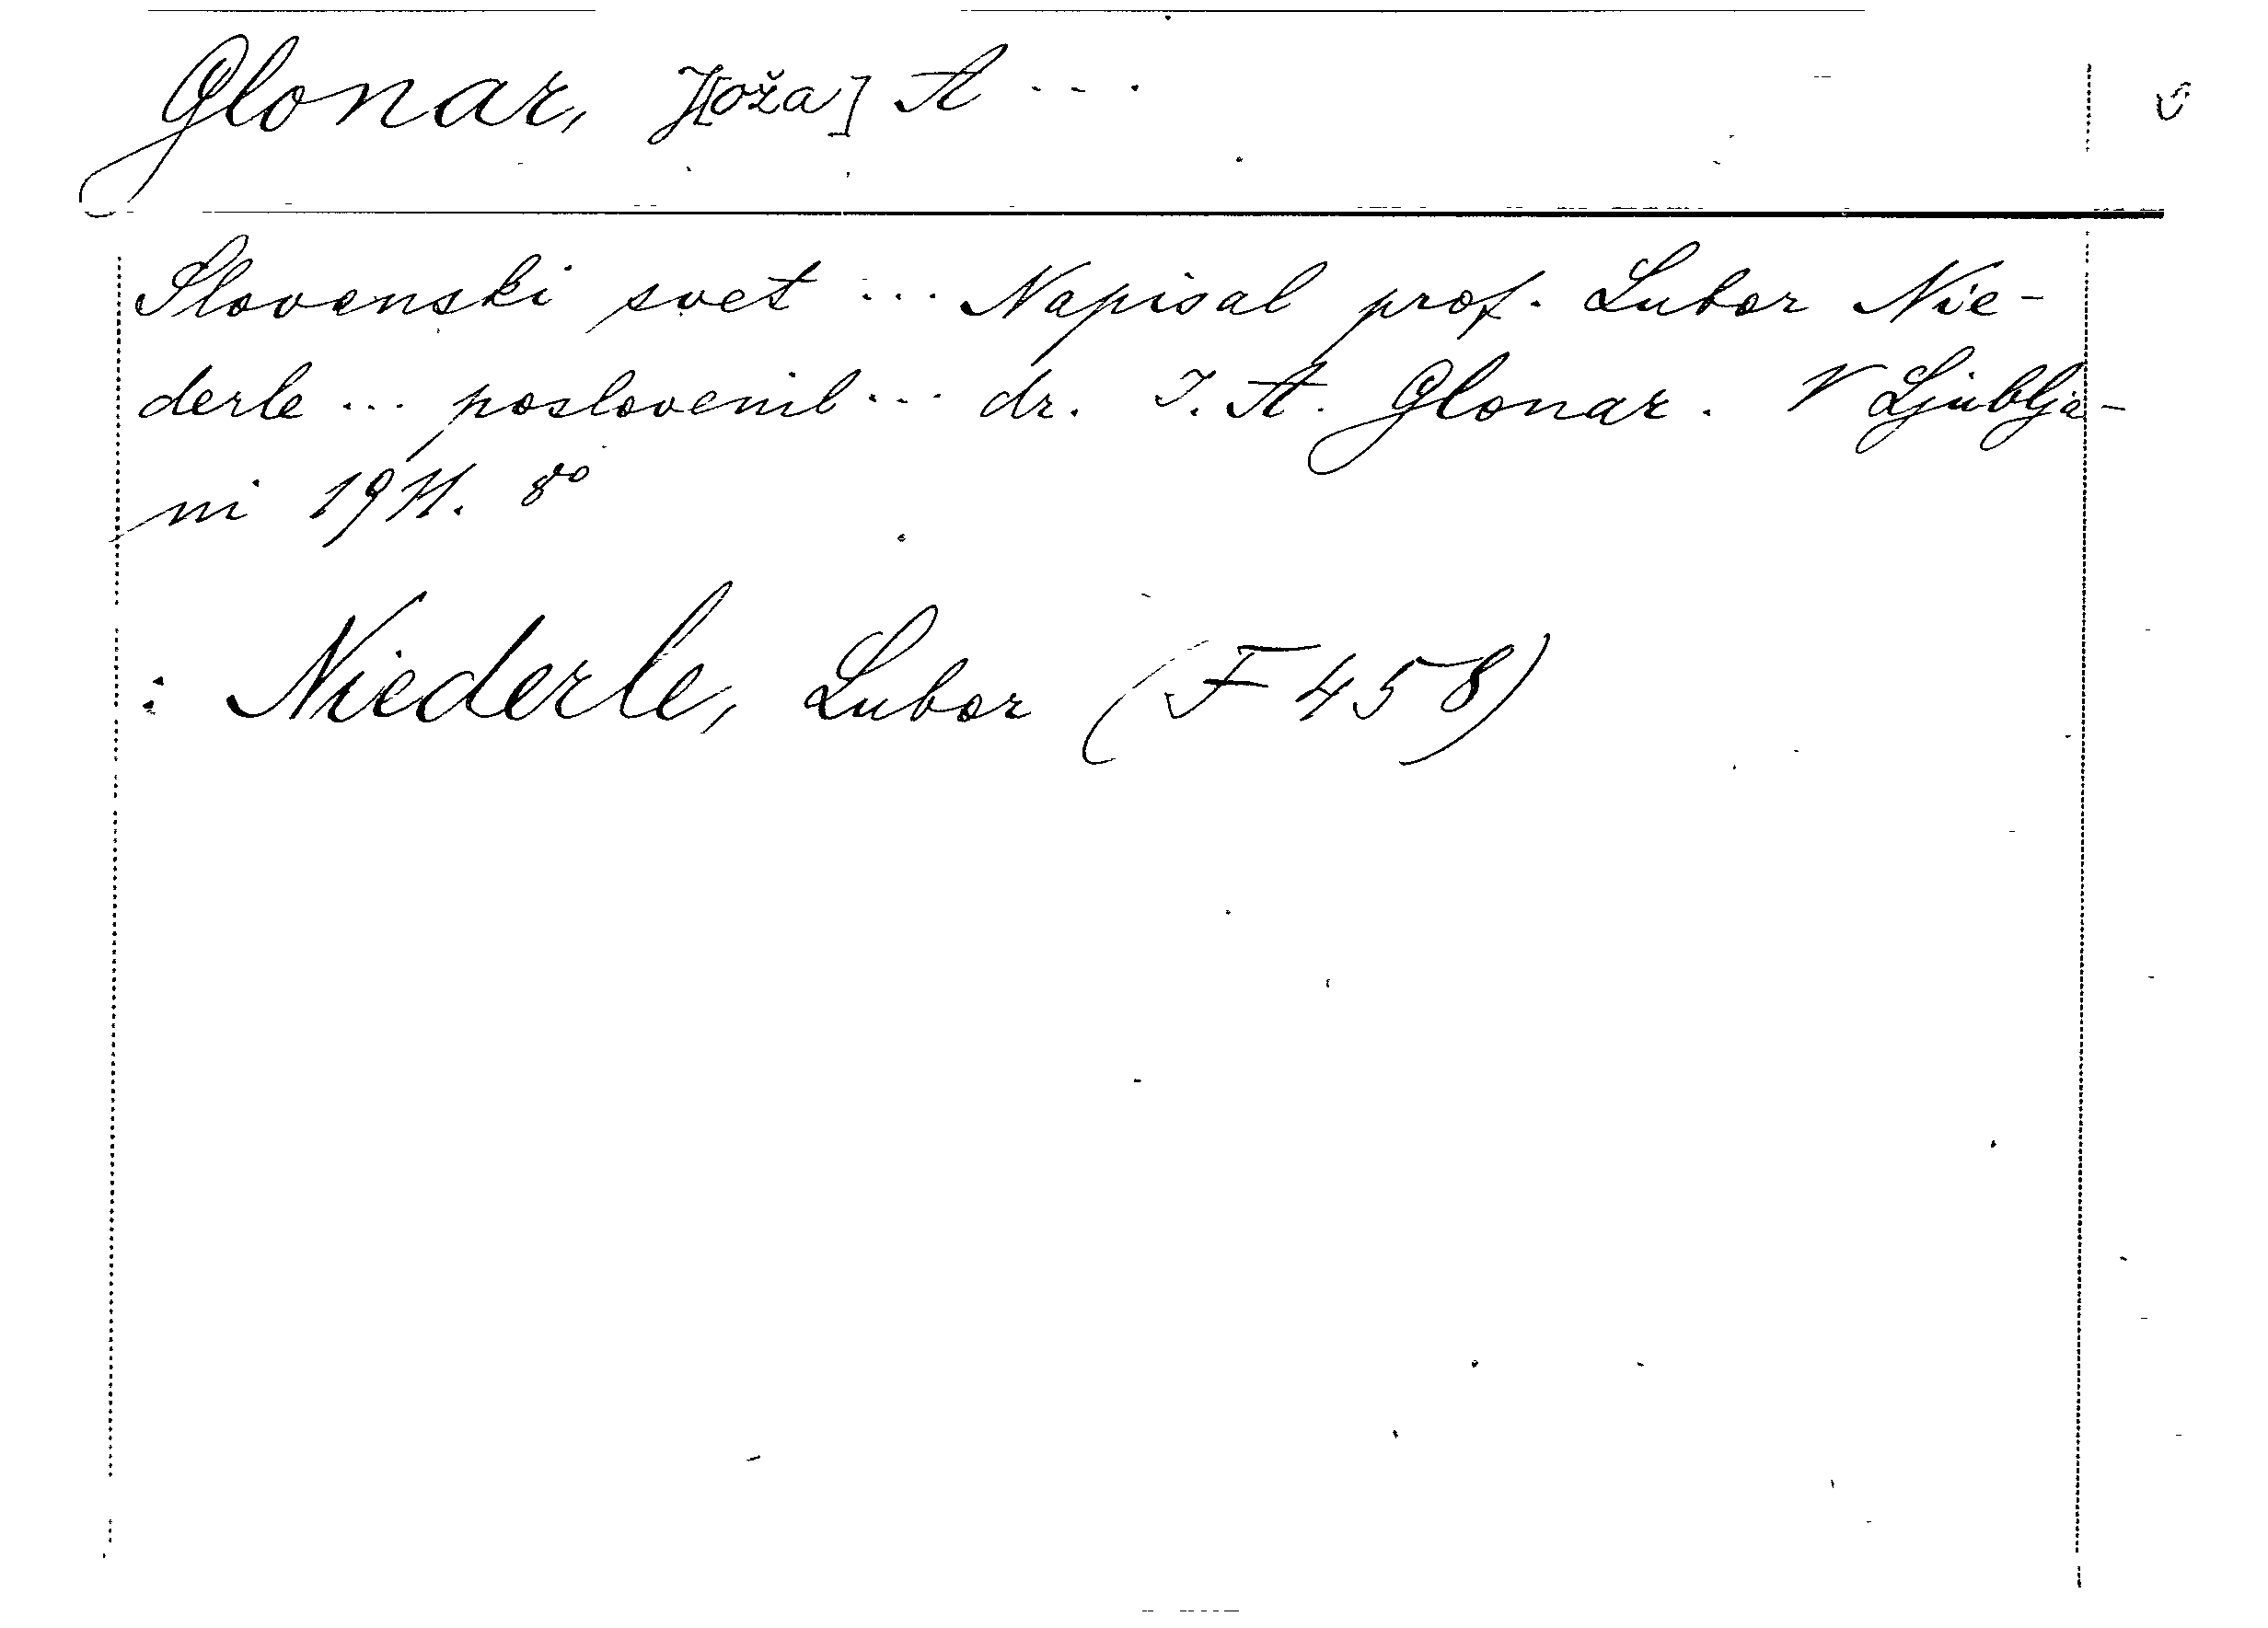 Glonar, J[oža] A ...
Slovanski svet ... Napisal prof. Lubor Nie-
derle ... poslovenil ... dr. J. A. Glonar. V Ljublja-
ni 1911. 8°
: Niederle, Lubor (F 458)